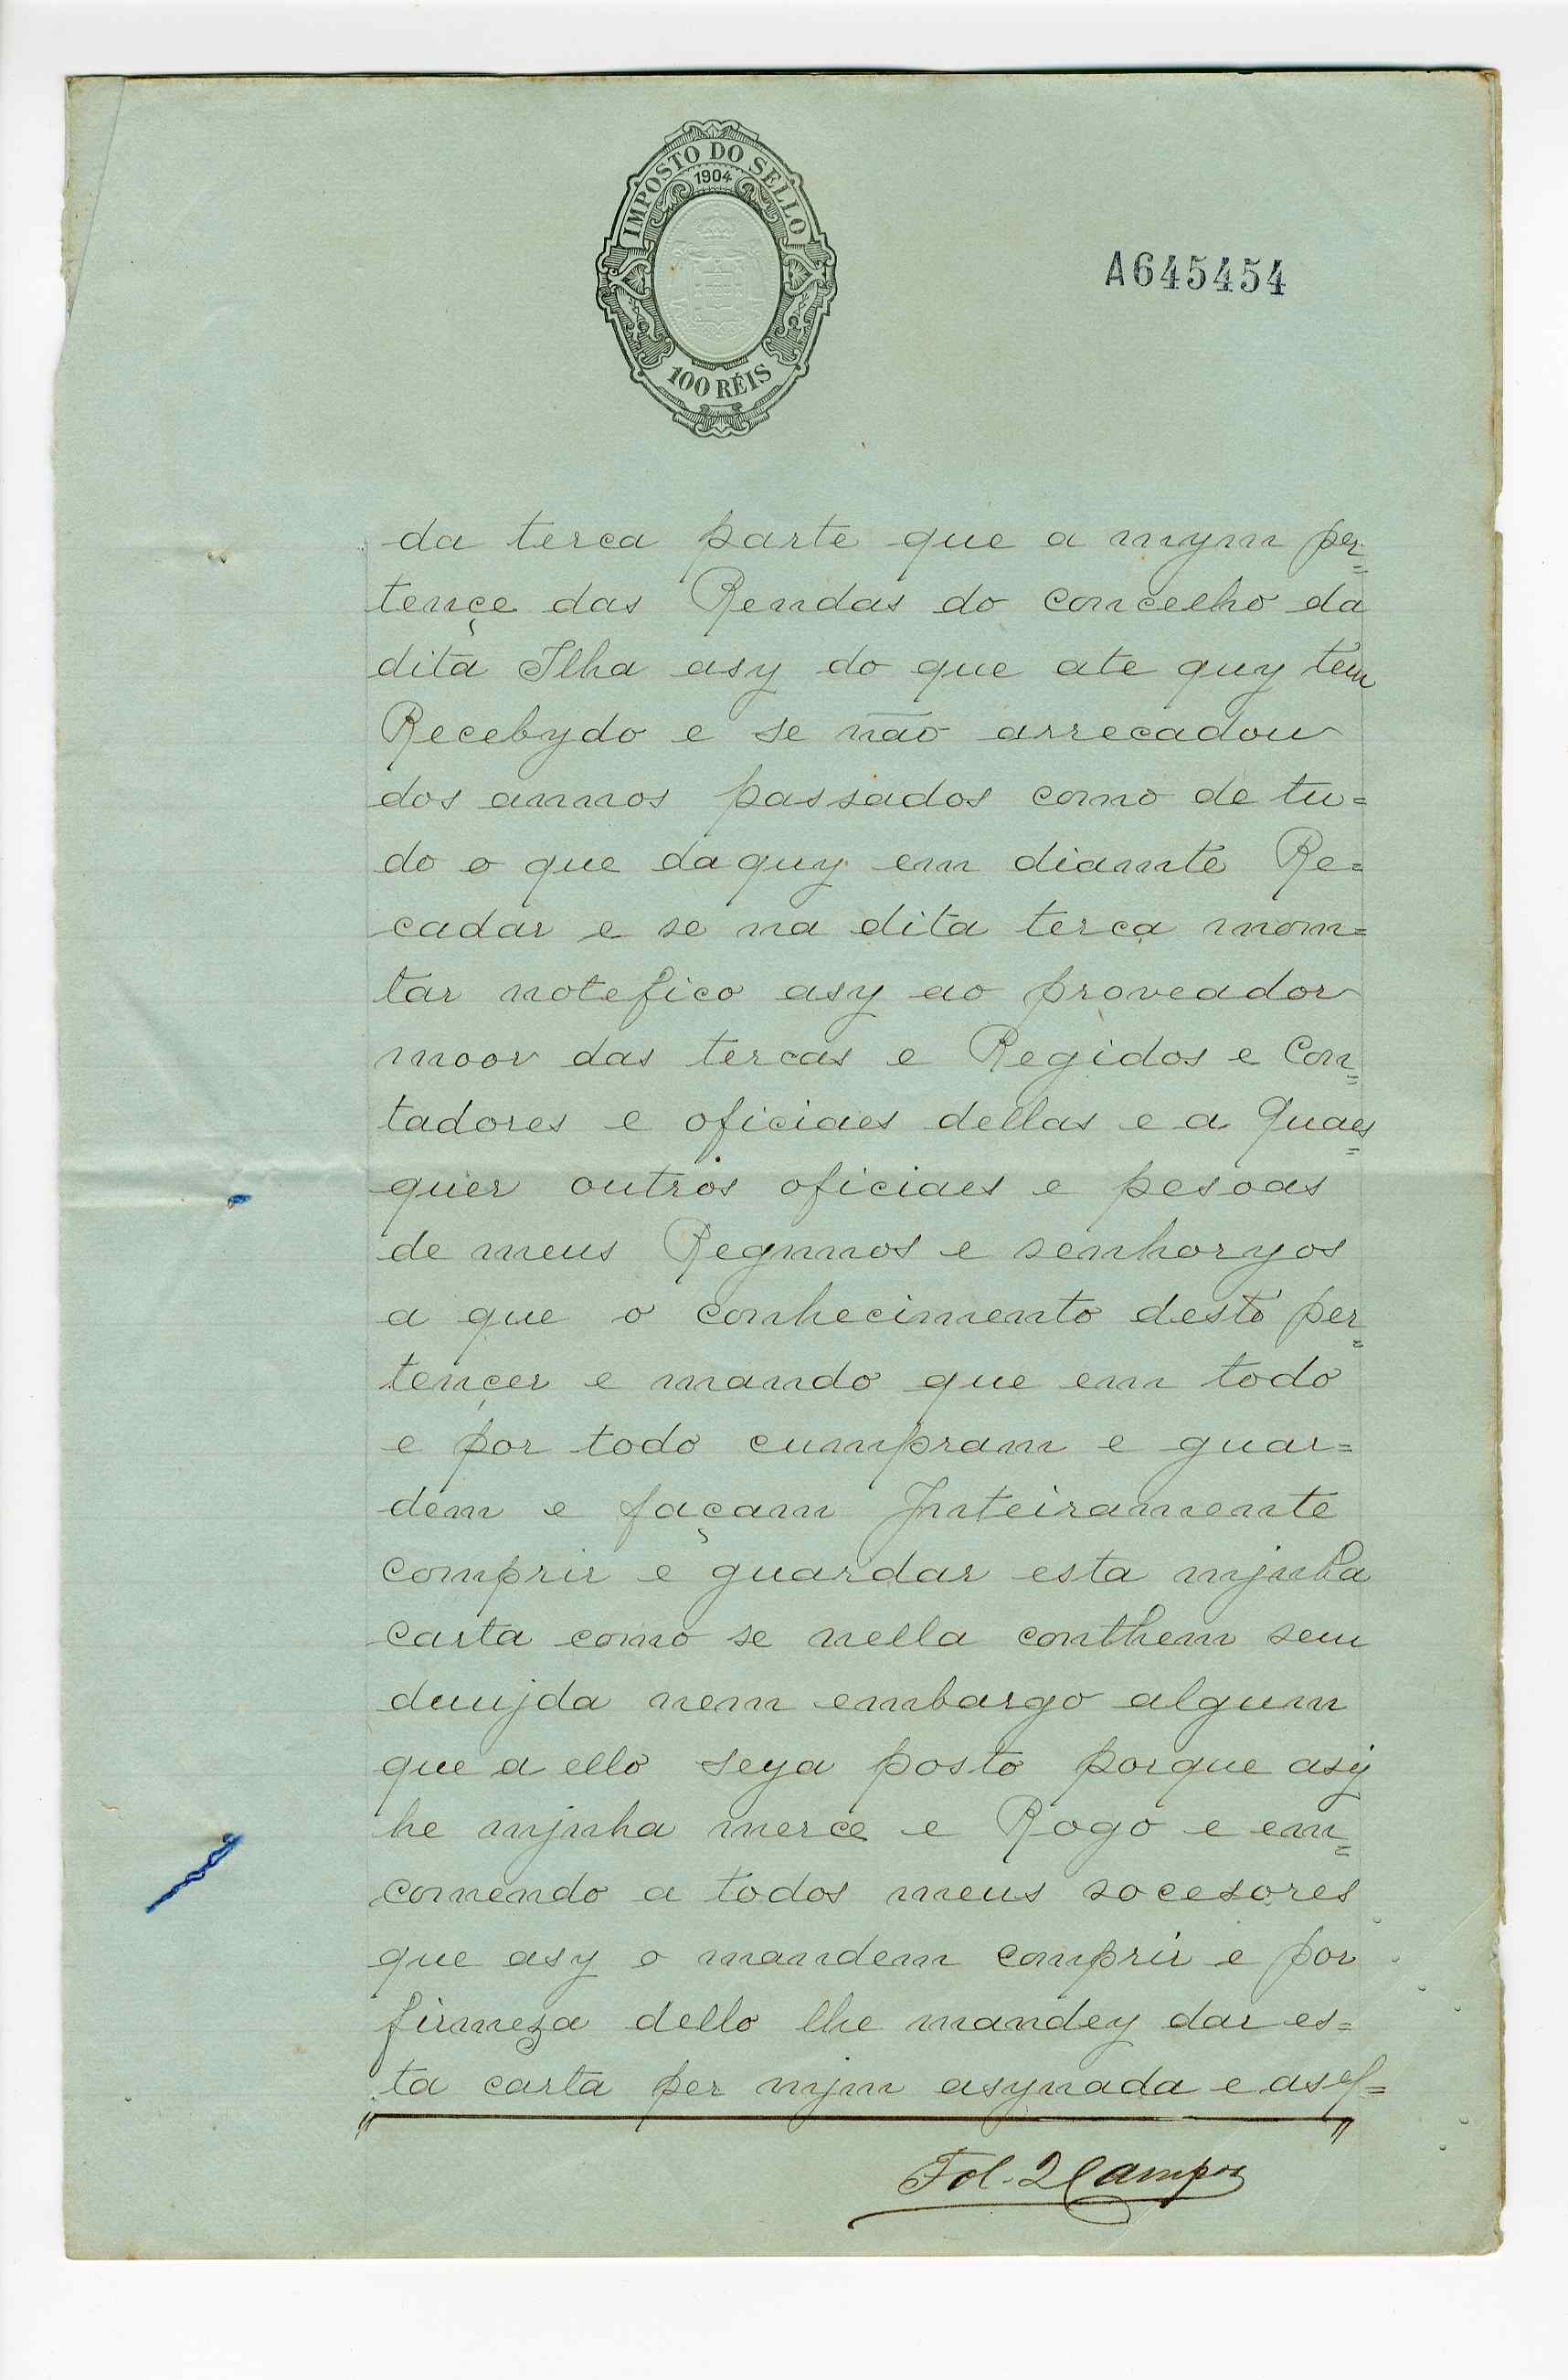 IMPOSTO DO SELLO
1904
100 RÉIS
A645454
da terca parte que a mym per=
tençe das Rendas do concelho da
dita Ilha asy do que ate quy tem
Recebydo e se não arrecadou
dos annos passados como de tu=
do o que daquy em diamte Re=
cadar e se na dita terca mom=
tar notefico asy ao proveador
moor das tercas e Regidos e Con=
tadores e oficiaes dellas e a Quaes=
quer outros oficiaes e pesoas
de meus Regnnos e senhoryos
a que o conhecimento desto per=
tençer e mando que em todo
e por todo cumpram e guar=
dem e façam Jnteiramente
comprir e guardar esta mjnha
carta como se nella conthem sem
duujda nem embargo algum
que a ello seya posto porque asy
he mjnha merce e Rogo e em=
comendo a todos meus socesores
que asy o mandem comprir e por
firmeza dello lhe mandey dar es=
ta carta per mjm asynada e asel=
Fol. 2 Campos